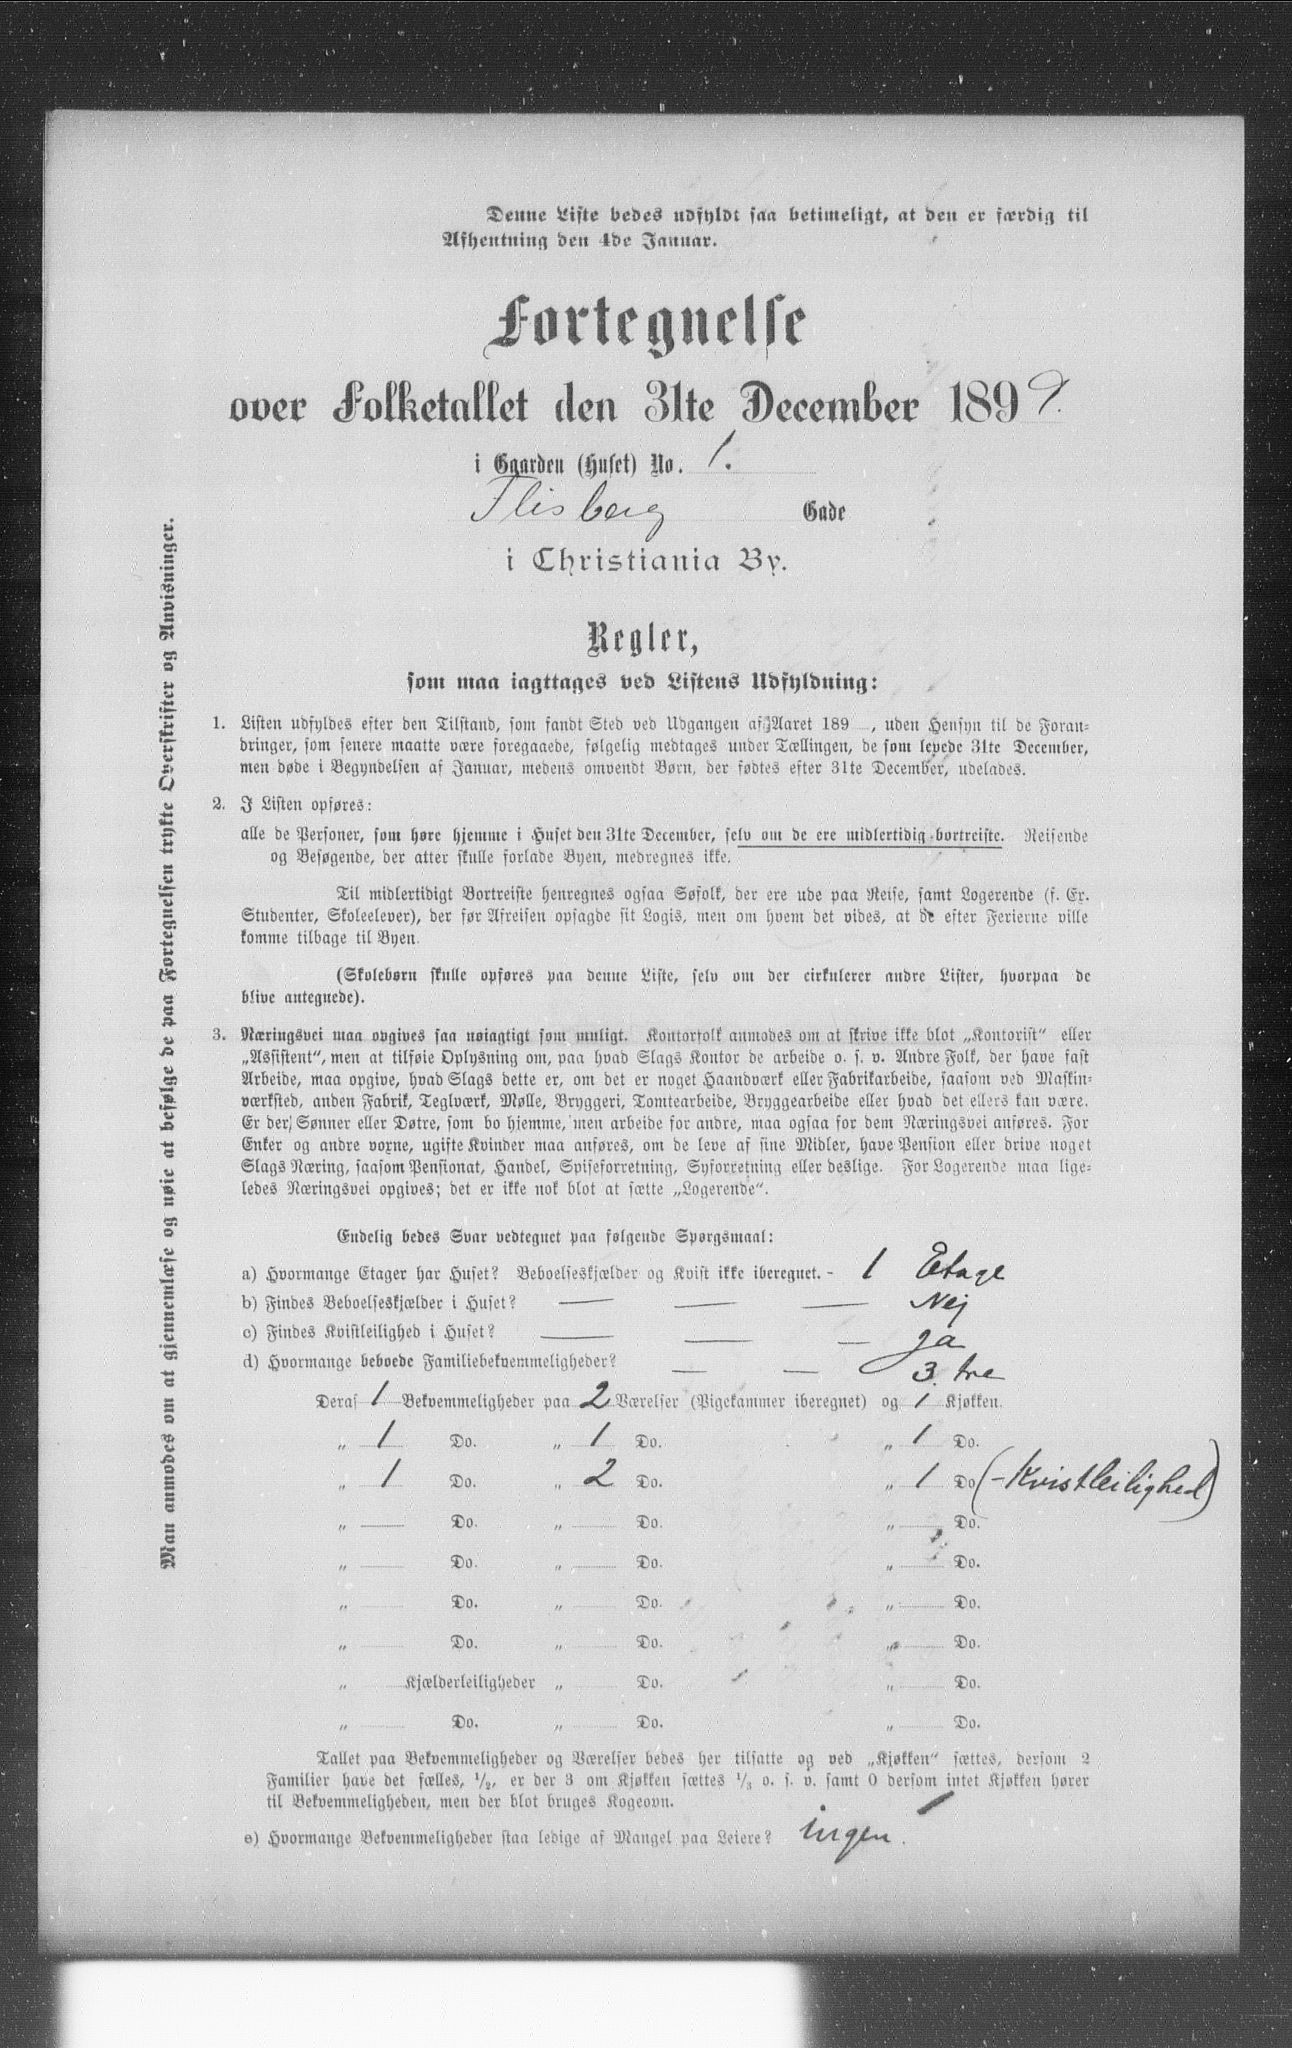 Denne Liste bedes udfyldt saa betimeligt, at den er færdig til
Afhentning den 4de Januar.
Fortegnelse
over Folketallet den 31te December 1899.
i Gaarden (Huset) No. 1.
Flisberg Gade
i Christiania By.
Regler,
som maa iagttages ved Listens Udfyldning:
1. Listen udfyldes efter den Tilstand, som fandt Sted ved Udgangen af Aaret 189 , uden Hensyn til de Foran-
dringer, som senere maatte være foregaaede, følgelig medtages under Tællingen, de som levede 31te December,
men døde i Begyndelsen af Januar, medens omvendt Børn, der fødtes efter 31te December, udelades.
2. I Listen opføres:
alle de Personer, som høre hjemme i Huset den 31te December, selv om de ere midlertidig bortreiste. Reisende
og Besøgende, der atter skulle forlade Byen, medregnes ikke.
Til midlertidigt Bortreiste henregnes ogsaa Søfolk, der ere ude paa Reise, samt Logerende (f. Ex.
Studenter, Skoleelever), der før Afreisen opsagde sit Logis, men om hvem det vides, at de efter Ferierne ville
komme tilbage til Byen.
(Skolebørn skulle opføres paa denne Liste, selv om der cirkulerer andre Lister, hvorpaa de
blive antegnede).
3. Næringsvei maa opgives saa nøiagtigt som muligt. Kontorfolk anmodes om at skrive ikke blot „Kontorist“ eller
„Assistent“, men at tilføie Oplysning om, paa hvad Slags Kontor de arbeide o. s. v. Andre Folk, der have fast
Arbeide, maa opgive, hvad Slags dette er, om det er noget Haandværk eller Fabrikarbeide, saasom ved Maskin-
værksted, anden Fabrik, Teglværk, Mølle, Bryggeri, Tomtearbeide, Bryggearbeide eller hvad det ellers kan være.
Er der Sønner eller Døtre, som bo hjemme, men arbeide for andre, maa ogsaa for dem Næringsvei anføres. For
Enker og andre voxne, ugifte Kvinder maa anføres, om de leve af sine Midler, have Pension eller drive noget
Slags Næring, saasom Pensionat, Handel, Spiseforretning, Syforretning eller deslige. For Logerende maa lige-
ledes Næringsvei opgives; det er ikke nok blot at sætte „Logerende“.
Endelig bedes Svar vedtegnet paa følgende Spørgsmaal:
a) Hvormange Etager har Huset? Beboelseskjælder og Kvist ikke iberegnet. - 1 Etage
b) Findes Beboelseskjælder i Huset? — — — Nej
c) Findes Kvistleilighed i Huset? — — — ja
d) Hvormange beboede Familiebekvemmeligheder? — — 3. tre
Deraf 1 Bekvemmeligheder paa 2 Værelser (Pigekammer iberegnet) og 1 Kjøkken.
„ 1 Do. „ 1 Do. „ 1 Do.
„ 1 Do. „ 2 Do. „ 1 Do (-Kvistleilighed)
„ Do. „ Do. „ Do.
„ Do. „ Do. „ Do.
„ Do. „ Do. „ Do.
„ Do. „ Do. „ Do.
„ Kjælderleiligheder „ Do. „ Do.
„ Do. „ Do. „ Do.
Tallet paa Bekvemmeligheder og Værelser bedes her tilsatte og ved „Kjøkken“ sættes, dersom 2
Familier have det fælles, 1/2, er der 3 om Kjøkken sættes 1/3 o. s. v. samt 0 dersom intet Kjøkken hører
til Bekvemmeligheden, men der blot bruges Kogeovn.
e) Hvormange Bekvemmeligheder staa ledige af Mangel paa Leiere? ingen.
Man anmodes om at gjennemlæse og nøie at befølge de paa Fortegnelsen trykte Overskrifter og Anvisninger.